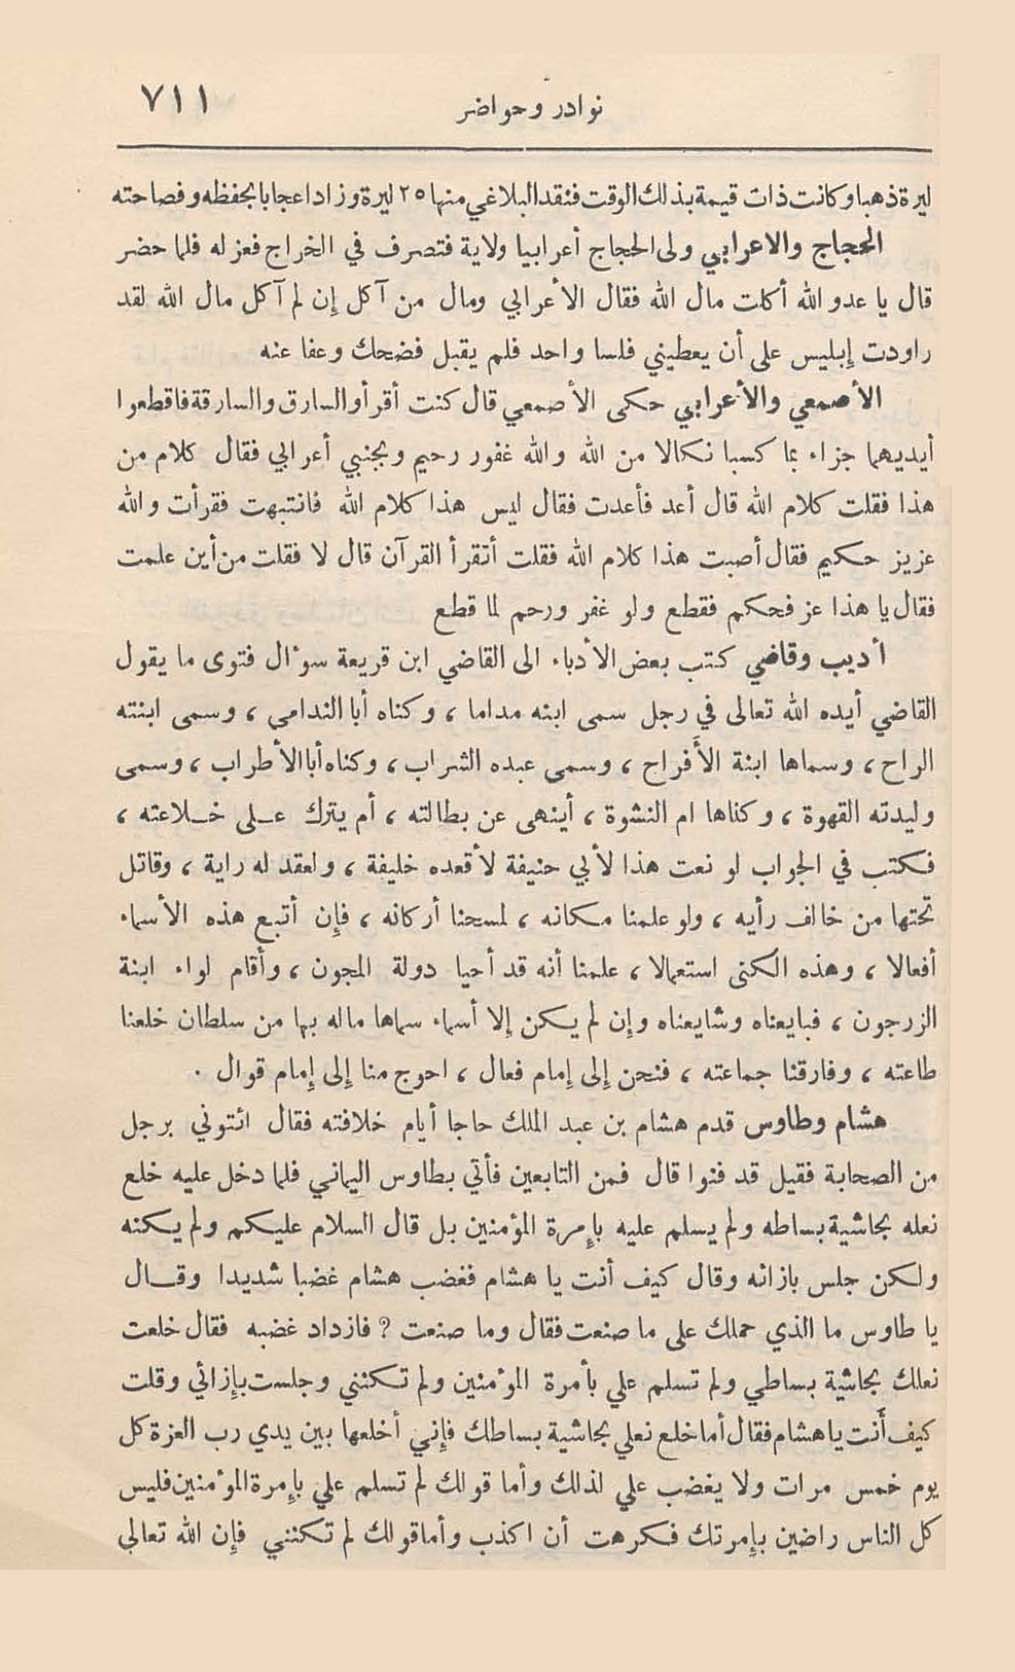 نوادر وحواضر ٧١١
ليرة ذهبا وكانت ذات قيمة بذلك الوقت فنقد البلاغي منها ٢٥ ليرة وزاد اعجابا بحفظه وفصاحته
الحجاج والاعرابي ولى الحجاج أعرابيا ولاية فتصرف في الخراج فعزله فلما حضر
قال يا عدو الله أكلت مال الله فقال الأعرابي ومال من آكل إن لم آكل مال الله لقد
راودت إبليس على أن يعطيني فلسا واحد فلم يقبل فضحك وعفا عنه
الأصمعي والأعرابي حكى الأصمعي قال كنت أقرأ والسارق والسارقة فاقطعوا
أيديهما جزاء بما كسبا نكالا من الله والله غفور رحيم وبجنبي أعرابي فقال كلام من
هذا فقلت كلام الله قال أعد فأعدت فقال ليس هذا كلام الله فانتبهت فقرأت والله
عزيز حكيم فقال أصبت هذا كلام الله فقلت أتقرأ القرآن قال لا فقلت من أين علمت
فقال يا هذا عز فحكم فقطع ولو غفر ورحم لما قطع
أديب وقاضي كتب بعض الأدباء الى القاضي ابن قريعة سوءال فتوى ما يقول
القاضي أيده الله تعالى في رجل سمى ابنه مداما ، وكناه أبا الندامى ، وسمى ابنته
الراح ، وسماها ابنة الأَفراح ، وسمى عبده الشراب ، وكناه أبا الأطراب ، وسمى
وليدته القهوة ، وكناها ام النشوة ، أينهى عن بطالته ، أم يترك عـلى خـلاعته ،
فكتب في الجواب لو نعت هذا لأبي حنيفة لأقعده خليفة ، ولعقد له راية ، وقاتل
تحتها من خالف رأيه ، ولو علمنا مكانه ، لمسحنا أركانه ، فإن أتبع هذه الأسماء
أفعالا ، وهذه الكنى استعمالا ، علمنا أنه قد أحيا دولة المجون ، وأقام لواء ابنة
الزرجون ، فبايعناه وشايعناه وإن لم يكن إلا أسماء سماها ماله بها من سلطان خلعنا
طاعته ، وفارقنا جماعته ، فنحن إلى إمام فعال ، احوج منا إلى إمام قوال .
هشام وطاوس قدم هشام بن عبد الملك حاجا أيام خلافته فقال ائتوني برجل
من الصحابة فقيل قد فنوا قال فمن التابعين فأتي بطاوس اليماني فلما دخل عليه خلع
نعله بحاشية بساطه ولم يسلم عليه بإمرة المؤمنين بل قال السلام عليكم ولم يكنه
ولكن جلس بازائه وقال كيف أنت يا هشام فغضب هشام غضبا شديدا وقـال
يا طاوس ما الذي حملك على ما صنعت فقال وما صنعت ؟ فازداد غضبه فقال خلعت
نعلك بحاشية بساطي ولم تسلم علي بأمرة الموءمنين ولم تكنني وجلست بإزائي وقلت
كيف أَنت يا هشام فقال أما خلع نعلي بحاشية بساطك فإني أخلعها بين يدي رب العزة كل
يوم خمس مرات ولا يغضب علي لذلك وأما قولك لم تسلم علي بإمرة الموءمنين فليس
كل الناس راضين بإمرتك فكرهت أن اكذب وأما قولك لم تكنني فإن الله تعالى